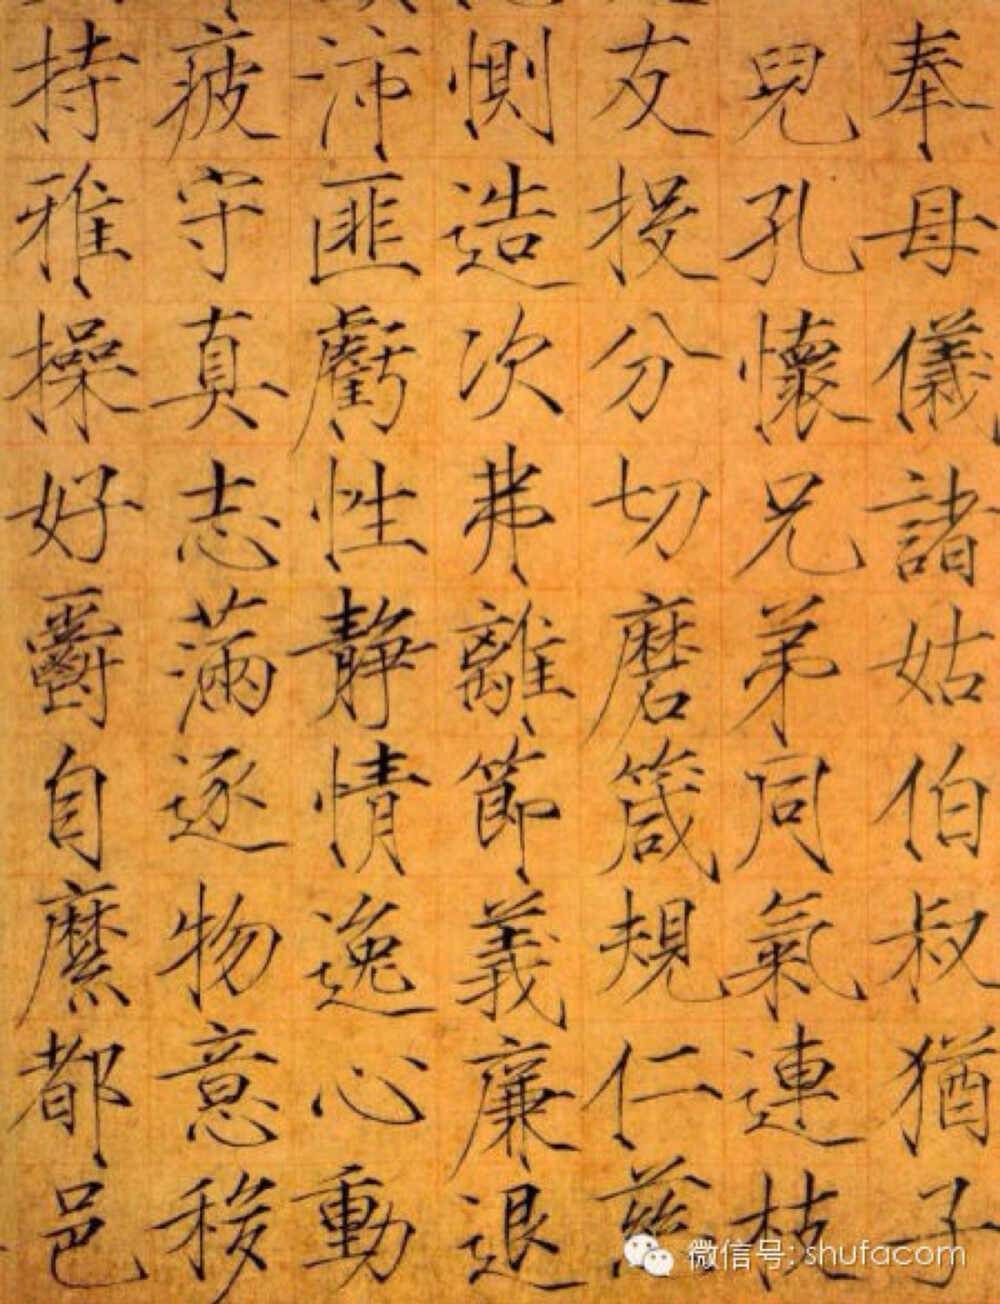 奉母儀諸姑伯叔猶子
兒孔懷兄弟同氣連枝
友投分切磨箴規仁慈
惻造次弗離節義廉退
沛匪虧性靜情逸心動
疲守真志滿逐物意移
持雅操好爵自縻都邑
微信号: shufacom